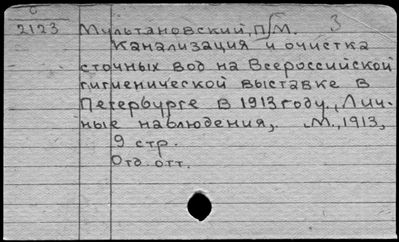 2123 Мультановский, П/М. 3
Канализация и очистка
сточных вод на Всероссийской
гигиенической выставке в
Петербурге в 1913 году., Лич-
ные наблюдения,. М., 1913,
9 стр.
Отд. отт.